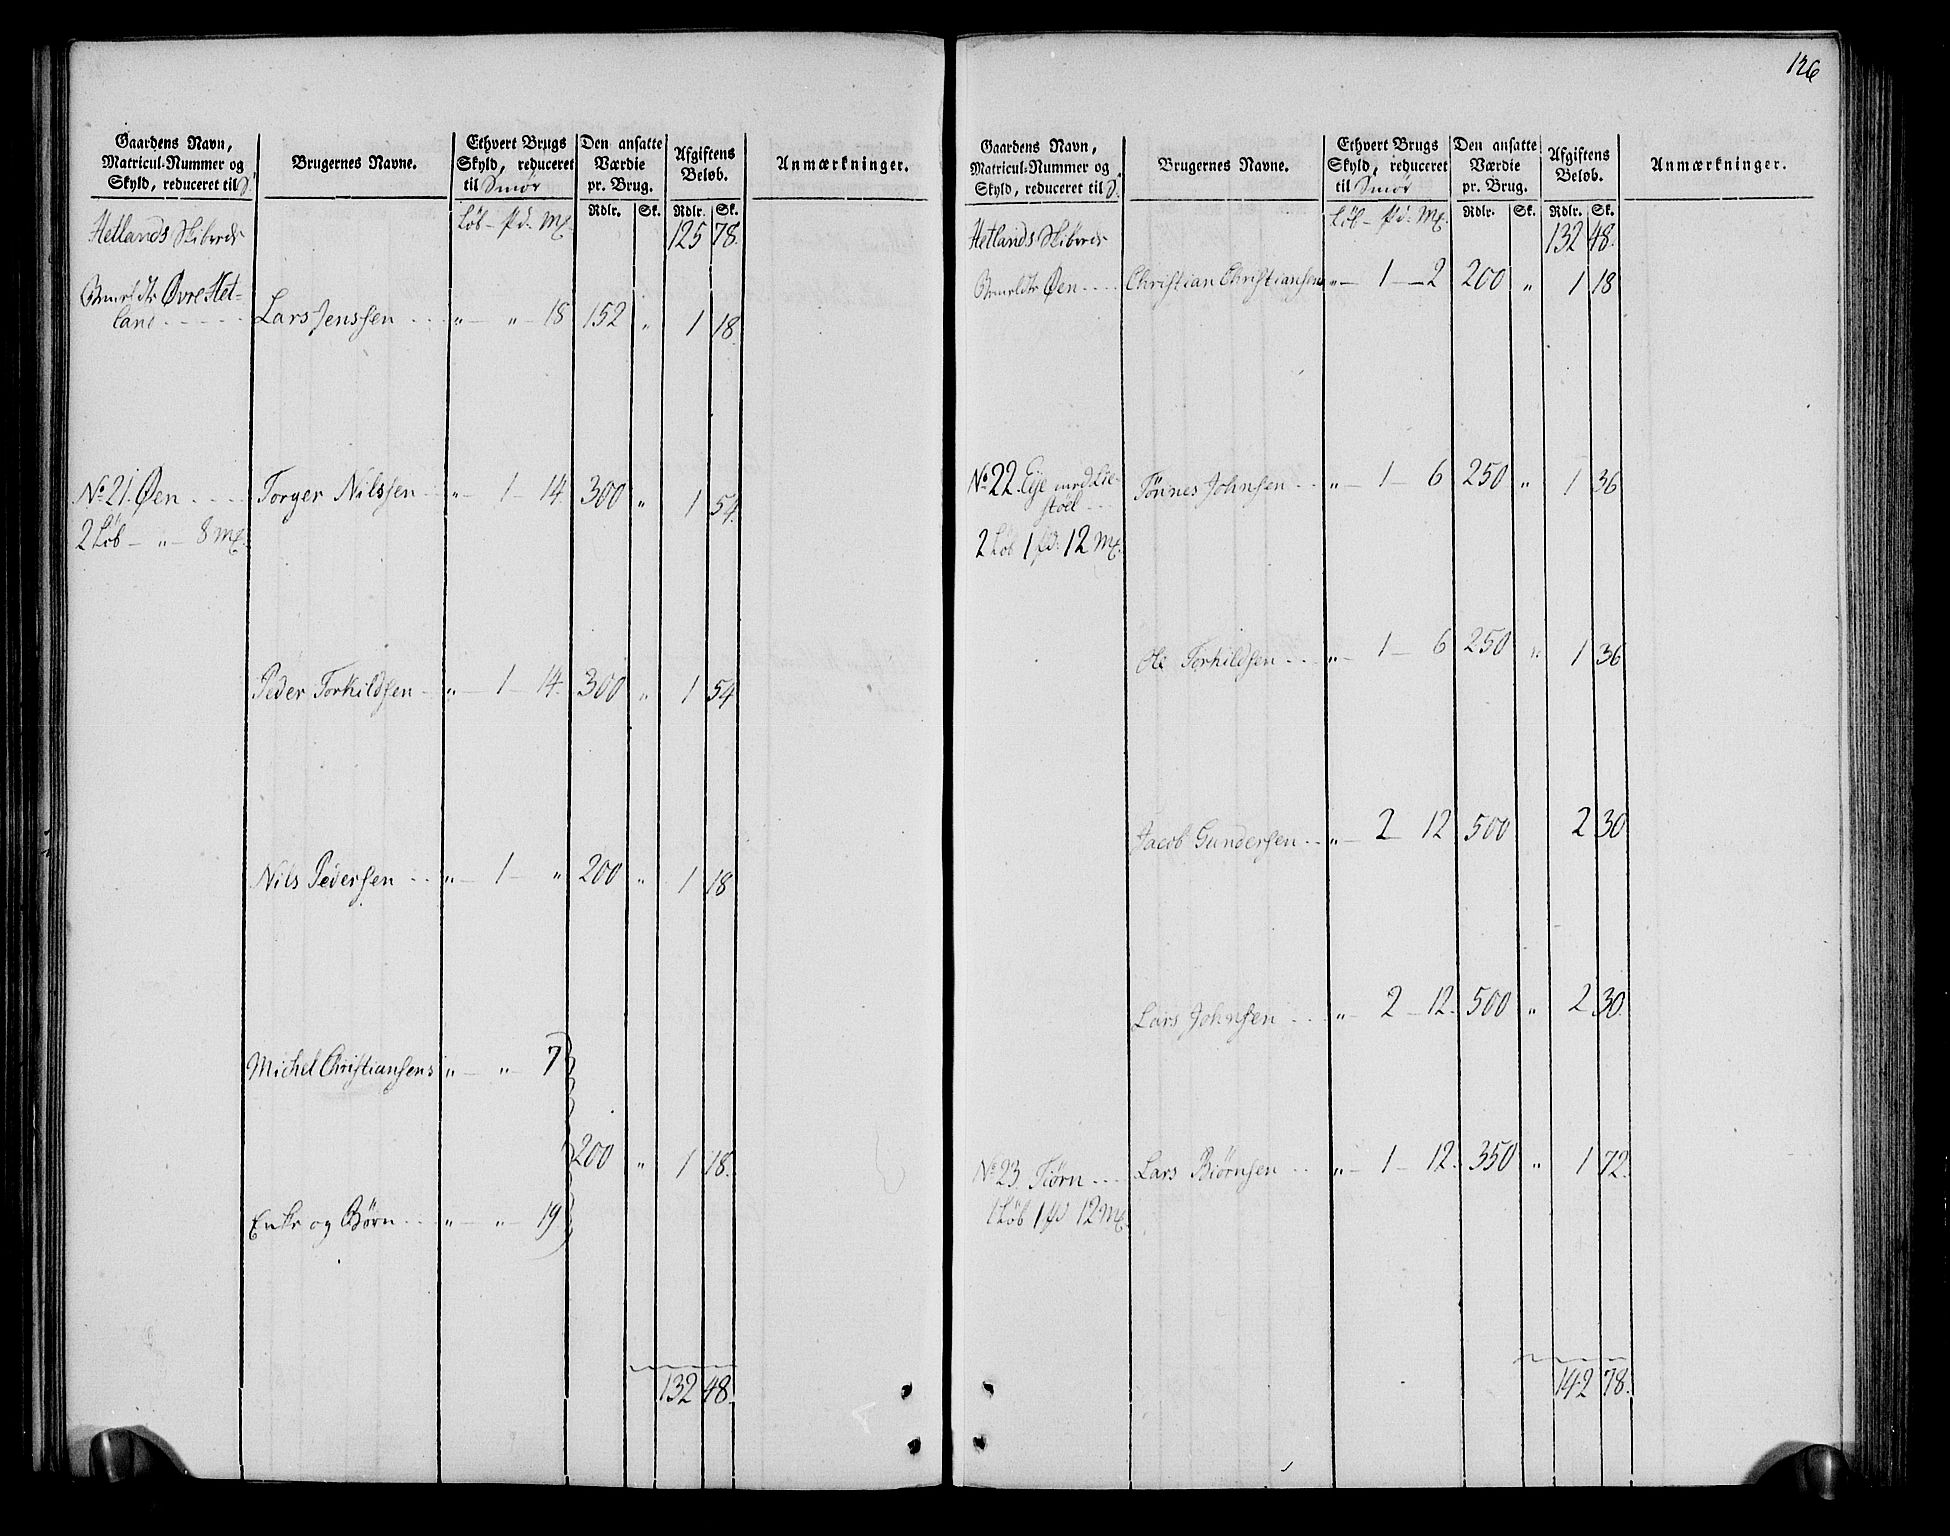 126
Gaardens Navn,
Matricul-Nummer og
Skyld, reduceret til S.
Brugernes Navne.
Ethvert Brugs
Skyld, reduceret
til Smør
Den ansatte
Værdie
pr. Brug.
Afgiftens
Beløb.
Anmærkninger.
Løb – Pd. Mk.
Rdlr. Sk. Rdlr. Sk.
Hetlands Skibrede 125 78.
Øvre Het-
land - - - - - Lars Jenssen - - - „ – „ – 18 152 „ 1 18
No 21. Øen - - - - Torger Nilssen - - „ – 1 – 14 300 „ 1 54.
2 Løb – „ – 8 Mk.
Peder Torkildsen - „ – 1 – 14. 300 „ 1 54
Nils Pedersen - - „ – 1 – „ 200 „ 1 18
Michel Christiansens „ – „ – 7
200 „ 1 18.
Enke og Børn - - - „ – „ – 19
132 48.
Gaardens Navn,
Matricul-Nummer og
Skyld, reduceret til S.
Brugernes Navne.
Ethvert Brugs
Skyld, reduceret
til Smør
Den ansatte
Værdie
pr. Brug.
Afgiftens
Beløb.
Anmærkninger.
Løb – Pd. Mk.
Rdlr. Sk. Rdlr. Sk.
Hetlands Skibrede 132 48.
Øen - - - - Christian Christiansen „ – 1 – 2 200 „ 1 18
No 22. Eje med Lie-
støel - - Tönnes Johnsen - - „ – 1 – 6 250 „ 1 36
2 Løb 1 pd. 12 Mk.
Ole Torkildsen - - - „ – 1 – 6 250 „ 1 36
Jacob Gundersen - - „ – 2 – 12 500 2 30
Lars Johnsen - - - „ – 2 – 12. 500 „ 2 30.
No 23. Tiørn - - - Lars Biørnsen - - „ – 1 – 12. 350 „ 1 72.
1 Løb 1 pd 12 Mk.
142 78.